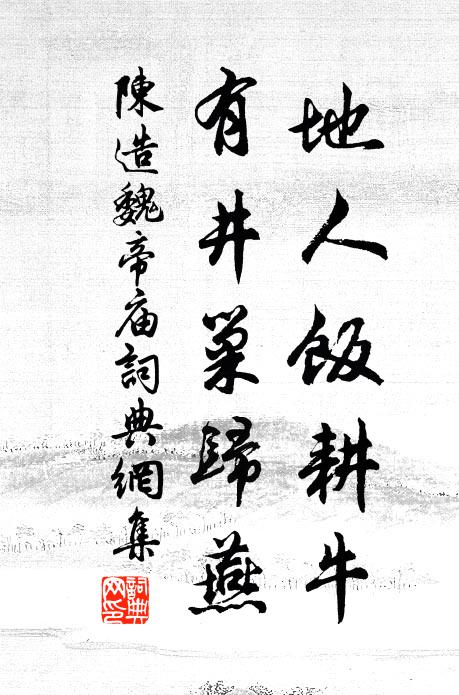 地人飯耕牛
有井巢歸燕
陳造魏帝庙詞典網集